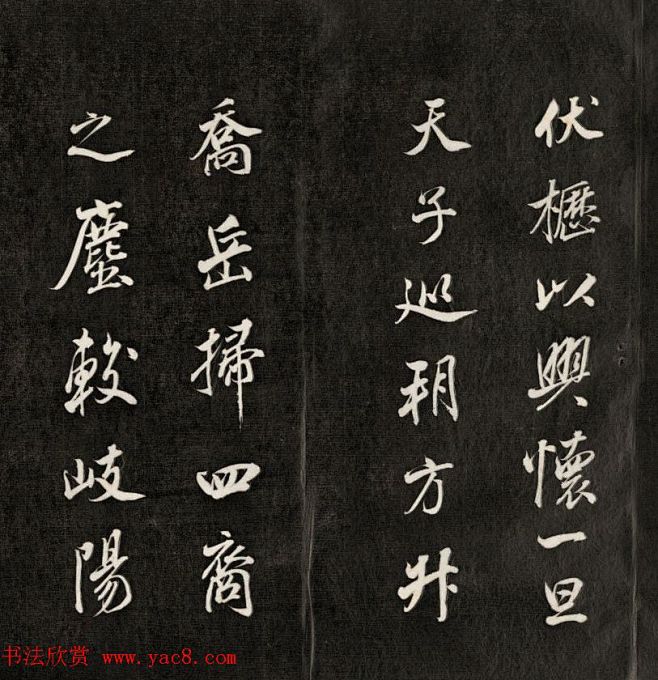 伏櫪以興懷一旦
天子巡朔方升
喬岳掃四裔
之塵較岐陽
书法欣赏 www.yac8.com